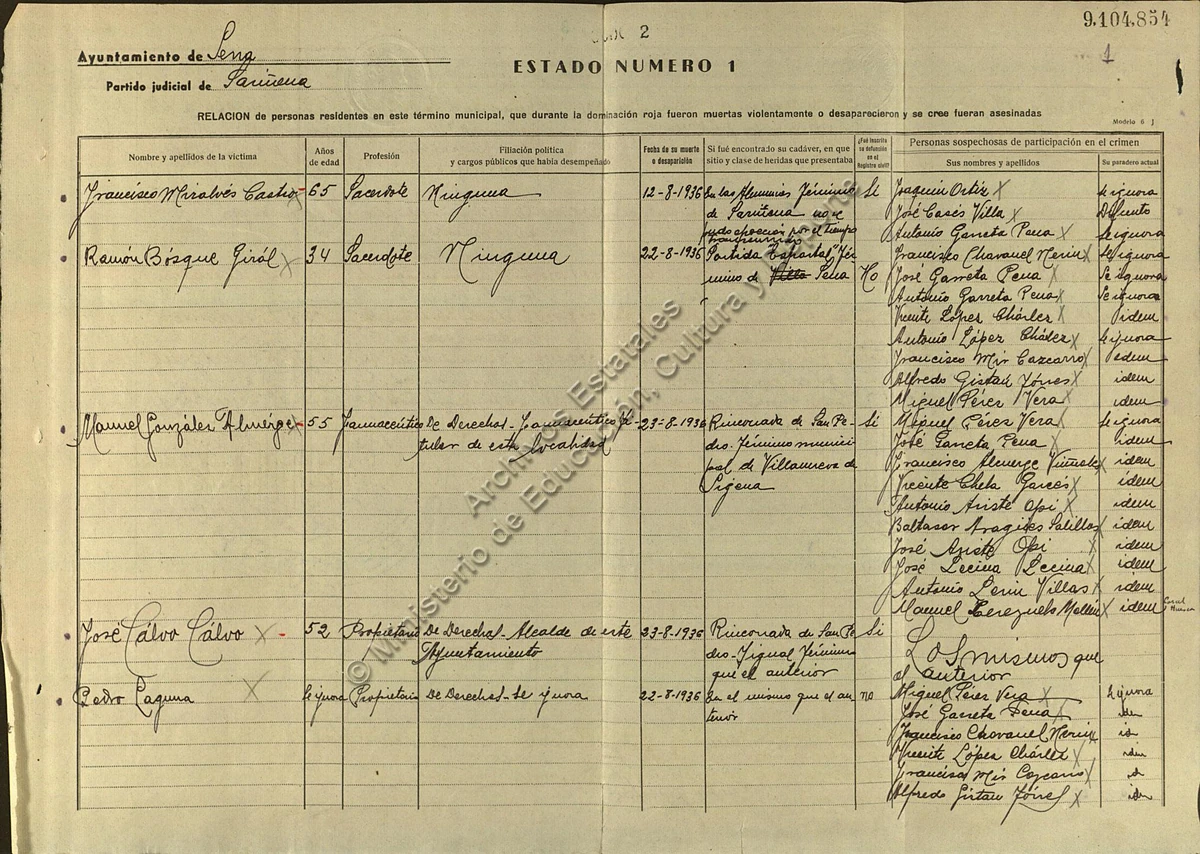 9.104.854
2
1
Ayuntamiento de Sena
ESTADO NUMERO 1
Partido judicial de Sariñena
RELACION de personas residentes en este término municipal, que durante la dominación roja fueron muertas violentamente o desaparecieron y se cree fueran asesinadas
Modelo 6
Nombre y apellidos de la víctima
Años de edad
Profesión
Filiación política y cargos públicos que había desempeñado
Fecha de su muerte o desaparición
Si fué encontrado su cadáver, en que sitio y clase de heridas que presentaba
¿Fué inscrita su defunción en el Registro civil?
Personas sospechosas de participación en el crimen
Sus nombres y apellidos
Su paradero actual
Francisco Miralvés Castro 65 Sacerdote Ninguna 12-8-1936 En las Almunias Término Si Joaquin Ortiz X Se ignora
de Sariñena no se José Casés Villa X Difunto
pudo apreciar por el tiempo Antonio Garreta Pena X Se ignora
transcurrido
Ramón Bosque Girál X 34 Sacerdote Ninguna 22-8-1936 Partida Tér- Francisco Chavanel Merin X Se ignora
mino de Villa Sena No José Garreta Pena X Se ignora
Antonio Garreta Pena X Se ignora
Vicente López Chárlez X idem
Antonio López Chárlez X Se ignora
Francisco Mir Cazcarro X idem
Alfredo Gistau Torres X idem
Miguel Pérez Vera X idem
Manuel González Almerge X 55 Farmacéutico De Derechas- Farmacéutico ti- 23-8-1936 Rinconada de San Pe- Si Miguel Péres Vera X Se ignora
tular de esta localidad dro- Término munici- José Garreta Pena X idem
pal de Villanueva de Francisco Almerge Viñuales X idem
Sigena Vicente Cheta Garcés X idem
Antonio Ariste Opi X idem
Baltasar Aragües Salillas X idem
José Ariste Opi X idem
José Lecina Lecina X idem
Antonio Lerin Villas X idem
Manuel Cerezuela Mellén X idem
José Cálvo Cálvo X - 52 Propietario De Derechas- Alcalde de este 23-8-1936 Rinconada de San Pe- Si Los mismos que
Ayuntamiento dro- Tigual Término el anterior
que el anterior
Pedro Laguna X Se ignora Propietario De Derechas- Se ignora 22-8-1936 En el mismo que el an- no Miguel Pérez Vera X Se ignora
terior José Garreta Pena X idem
Francisco Chavanel Merin X id
Vicente López Chárlez X idem
Francisco Mir Cazcarro X id
Alfredo Gistau Torres X idem
Archivos Estatales
© Ministerio de Educación, Cultura y Deporte